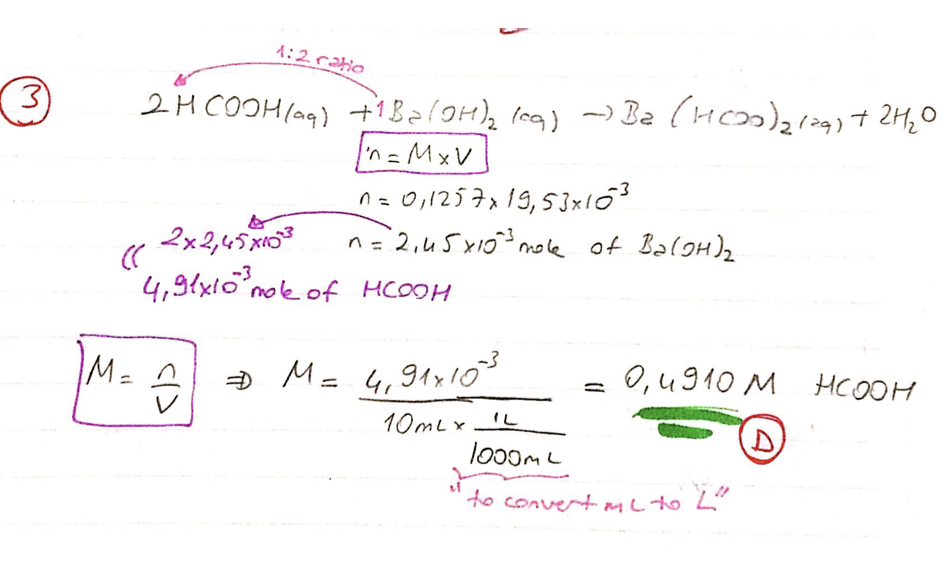 1:2 ratio
3 2HCOOH(aq) + 1Ba(OH)₂ (aq) → Ba(HCOO)₂(aq) + 2H₂O
n = M x V
n = 0,1257 x 19,53x10⁻³
2x2,45x10⁻³ n = 2,45 x10⁻³ mole of Ba(OH)₂
4,91x10⁻³ mole of HCOOH
M = n/V ⇒ M = 4,91x10⁻³ / 10mL x 1L/1000mL = 0,4910 M HCOOH
D
"to convert mL to L"